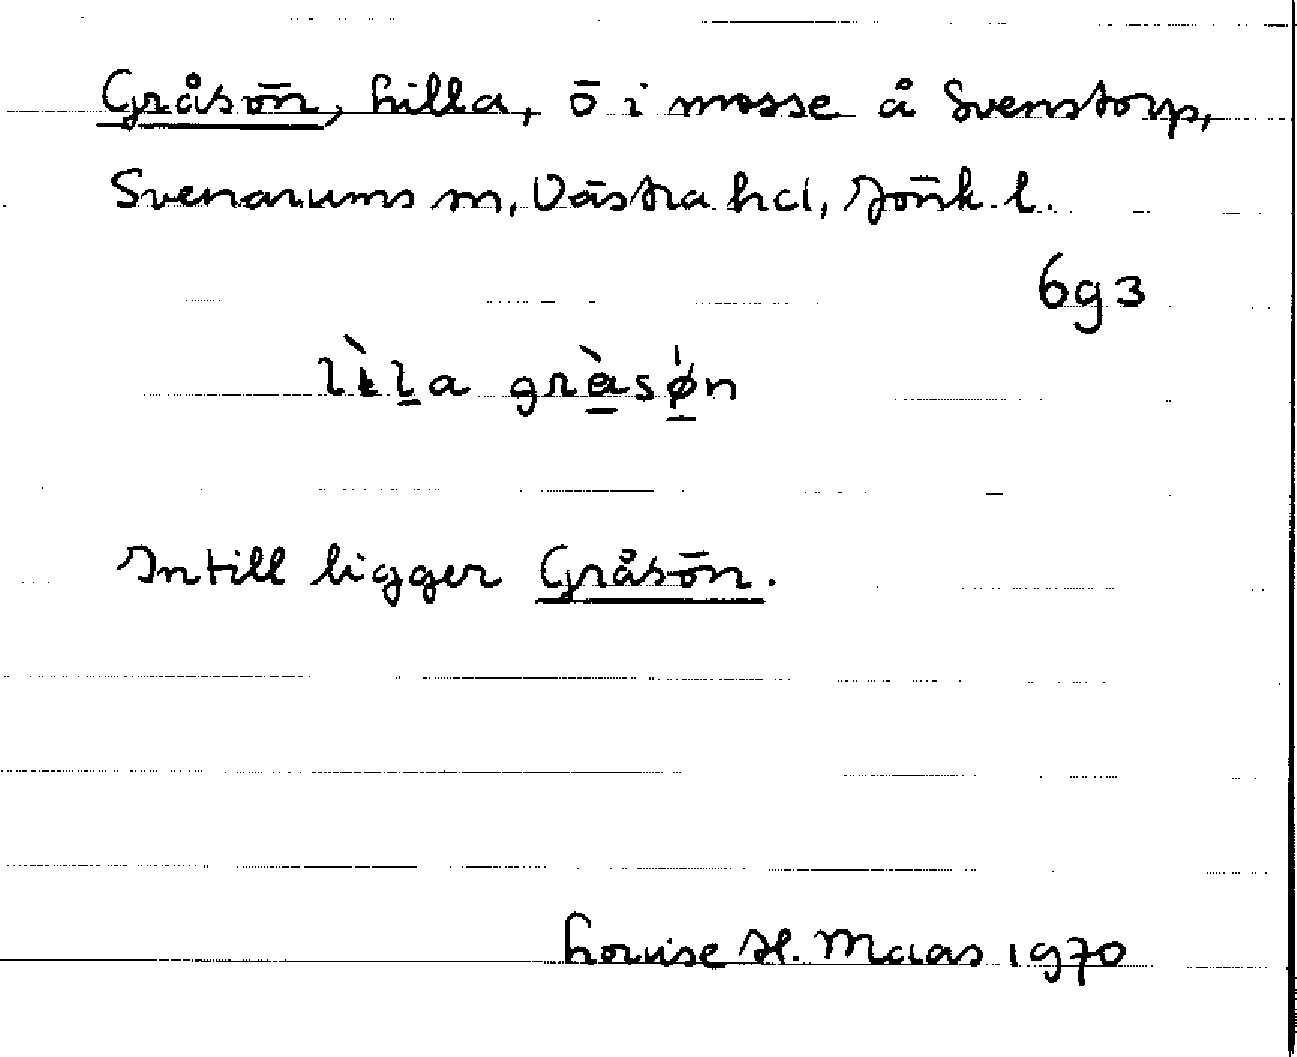 Gråsön, Lilla, ö i mosse å Svenstorp,
Svenarums sn, Västra hd, Jönk. l.
6g3
lìla gràsøn
Intill ligger Gråsön.
Louise H. Maas 1970